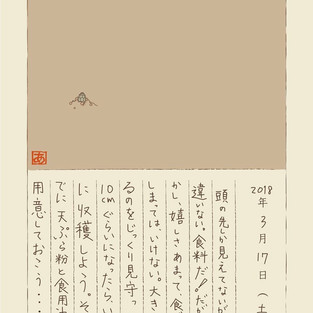 2018年3月17日(土
頭の先しか見えてないが
違いない。食料だ!だが
かし、嬉しさあまって、食
しまっては、いけない。大き
るのをじっくり見守っ
10cmぐらいになったら、い
に収穫しよう。そ
でに天ぷら粉と食用油
用意しておこう・・・
あ